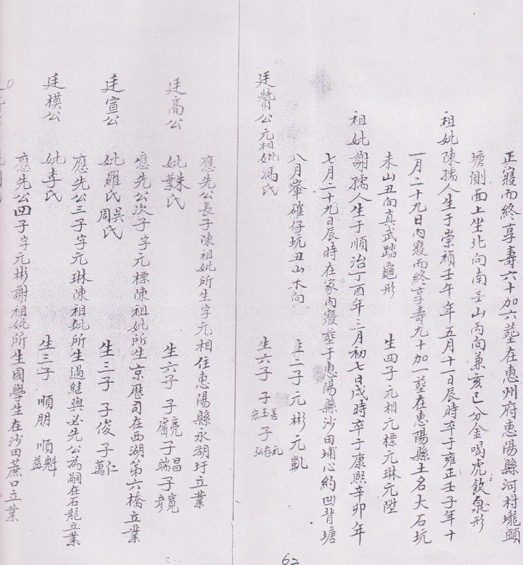 正寢而終享壽六十加六塟在惠州府惠陽縣河村壠頭
塘側面上坐北向南壬山丙向兼亥巳分金喝虎飲泉形
祖妣陳孺人生于崇禎壬午年五月十一日辰時卒于雍正壬子年十
一月二十九日內寢而終享壽九十加一塟在惠陽縣土名大石坑
未山丑向真武踏龜形 生四子元相元標元琳元陞
祖妣謝孺人生于順治丁酉年三月初七日戌時卒于康熙辛卯年
七月二十九日辰時在家內寢塟于惠陽縣沙田埔心約凹背塘
八月窜確仔坑丑山未向 生二子元彬元凱
廷贊公元相妣馮氏 生六子
應先公長子陳祖妣所生字元相住惠陽縣永湖圩立業
廷高公 妣朱氏 生六子
應先公次子字元標陳祖妣所生京歷司在西湖第六橋立業
廷宣公 妣羅氏吳氏周氏 生三子 子俊子仁萬
應先公三子字元琳陳祖妣所生過繼與必先公為嗣在石龍立業
廷模公 妣李氏 生三子 順朋 順魁益
應先公四子字元彬謝祖妣所生國學生在沙田蔗口立業
62